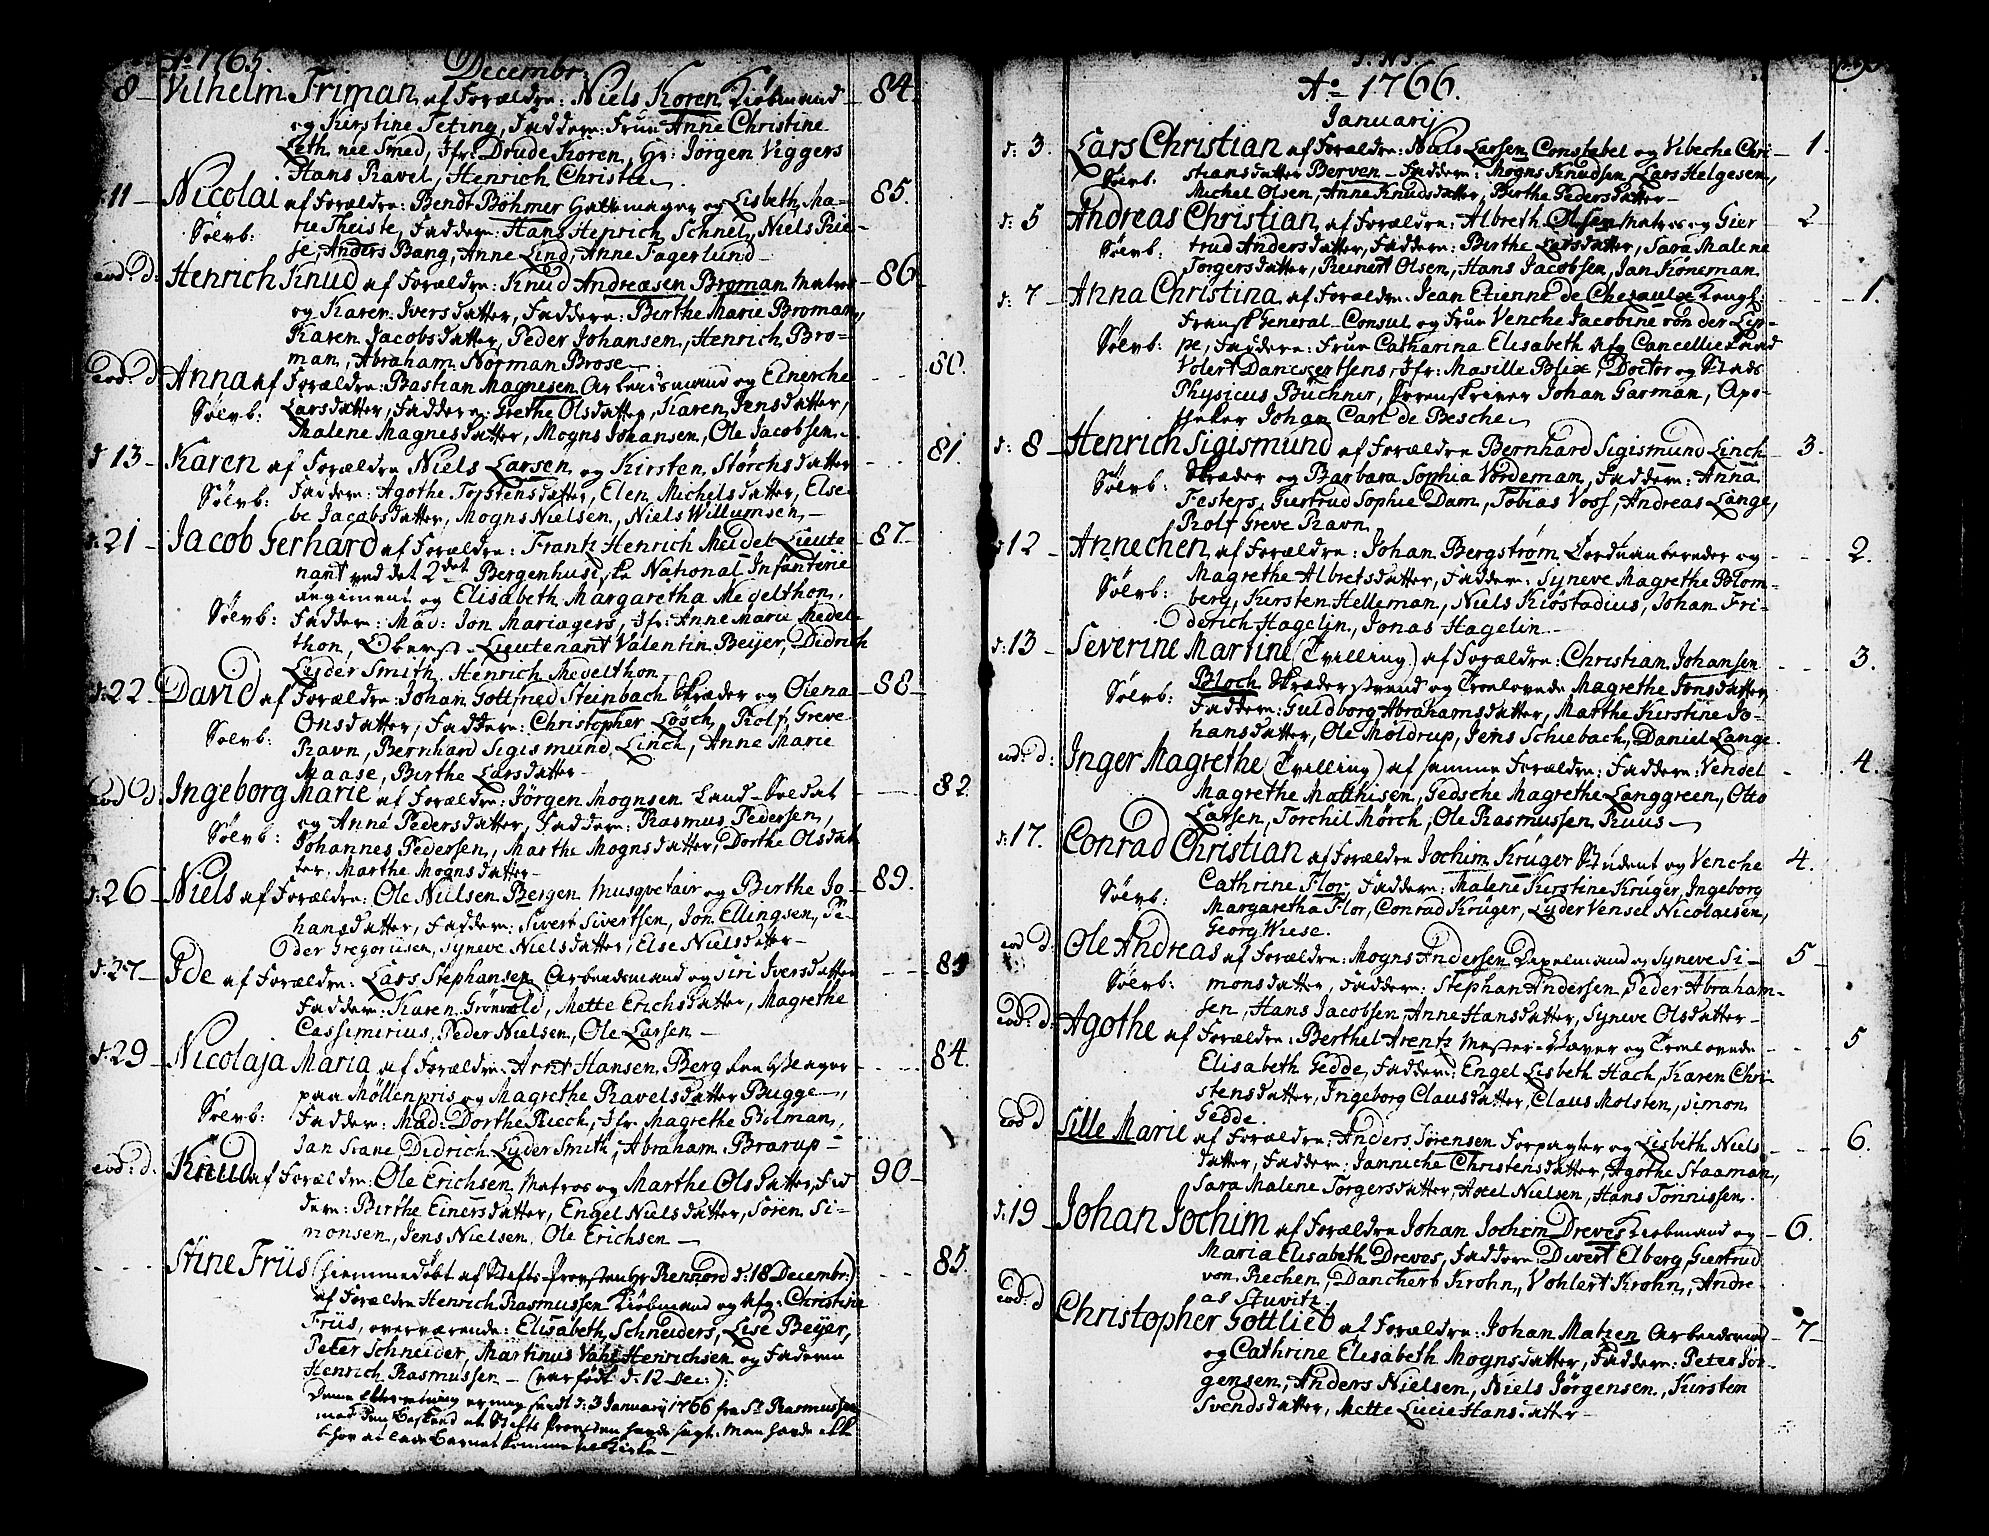 Ao 1765. Decembr:
8 Vilhelm Friman af Forældre: Niels Koren Kiøbmand 84.
og Kirstine Teting, Faddere: Frue Anne Christine
Leth née Smed, Jfr: Drude Koren, Hr: Jörgen Viggers
Hans Ravel, Henrich Christie
d: 11 Nicolai af Forældre: Bendt Böhmer Hattemager og Lisbeth Ma- 85.
Sölvb: trie Theiste, Faddere: Hans Henrich Schnel, Niels Rie-
se, Anders Bang, Anne Lind, Anne Fagerlund
eod: d: Henrich Knud af Forældre: Knud Andreasen Broman Matros 86
og Karen Iversdatter, Faddere: Birthe Marie Broman,
Karen Jacobsdatter, Peder Johansen, Henrich Bro-
man, Abraham Norman Brose
eod: d: Anna af Forældre: Bastian Magnesen Arbeidsmand og Einerche 80.
Sölvb: Larsdatter, Faddere: Grethe Olsdatter, Karen Jensdatter,
Malene Magnesdatter, Mogns Johansen, Ole Jacobsen
d 13 Karen af Forældre Niels Larsen og Kirsten Störchsdatter 81.
Sölvb: Faddere: Agothe Torstensdatter, Elen Michelsdatter, Else-
be Jacobsdatter, Mogns Nielsen, Niels Willumsen,
d: 21 Jacob Gerhard af Forældre: Frantz Henrich Meidel Lieute 87
nant ved det 2det Bergenhusiske National Infanterie
Regiment og Elisabeth Margaretha Megelthon,
Sölvb: Faddere: Mad: Jon Mariagers, Jfr: Anne Marie Medel-
thon, Oberst-Lieutenant Valentin Beijer, Didrich
Lyder Smith, Henrich Mevelthon
d: 22 David af Forældre: Johan Gottfried Steinbach Skræder og Olena 88
Sölvb: Onsdatter, Faddere: Christopher Lösch, Rolf Greve
Ravn, Bernhard Sigismund Linch, Anne Marie
Maase, Birthe Larsdatter
eod d: Ingeborg Marie af Forældre: Jörgen Mognsen Land-Soldat 82.
og Anne Pedersdatter, Faddere: Rasmus Pedersen,
Sölvb: Johannes Pedersen, Marthe Mognsdatter, Dorthe Olsdat
ter, Marthe Mognsdatter
d: 26 Niels af Forældre: Ole Nielsen Bergen Musqvetair og Birthe Jo- 89.
hansdatter, Faddere: Sivert Sivertsen, Jon Ellingsen, Pe-
der Gregoriisen, Syneve Nielsdatter, Else Nielsdatter
d: 27 Ide af Forældre: Lars Stephansen Arbeidsmand og Siri Iversdatter 83
Faddere: Karen Grönvold, Mette Erichsdatter, Magrethe
Cassemerius, Peder Nielsen, Ole Larsen
d: 29 Nicolaja Maria af Forældre: Arnt Hansen Berg 84.
paa Möllenpris og Magrethe Ravelsdatter Bugge,
Sölvb: Faddere: Mad: Dorthe Riech, Jfr Magrethe Bilman,
Jan Svane, Didrich Lyder Smith, Abraham Brarup
eod: d: Knud af Forældre: Ole Erichsen Matros og Marthe Olsdatter, Fad 90
dere: Birthe Einersdatter, Engel Nielsdatter, Sören Si-
monsen, Jens Nielsen, Ole Erichsen
Stine Friis (hiemmedöbt af Stifts-Provsten Hr Rennord d: 18 Decembr:) 85.
af Forældre Henrich Rasmussen Kiöbmand og Afg: Christine
Friis, overværende: Elisabeth Schneiders, Lise Beijer,
Peter Schneider, Martinus Vahl Henrichsen og Faderen
Henrich Rasmussen (var födt d: 12 Dec:):
Denne efterretning er mig sendt d: 3 January 1766 fra Sr Rasmussen
med den beskeed at Stifts Provsten havde sagt: Man havde ikke
behov at lade Barnet komme til Kirke
I. N. I.
Ao 1766.
Januarij
d: 3. Lars Christian af Forældre: Niels Larsen Constabel og Vibeche Chri- 1.
Sölvb. stiansdatter Berven Faddere: Mogns Knudsen, Lars Helgesen,
Michel Olsen, Anne Knudsdatter, Birthe Pedersdatter
d: 5 Andreas Christian af Forældre: Albreth Olsen Matros og Gier 2
Sölvb: trud Andersdatter, Faddere: Birthe Larsdatter, Sara Malene
Torgersdatter, Reinert Olsen, Hans Jacobsen, Jan Køneman
d: 7 Anna Christina af Forældre: Jean Etienne de Chezaulx Kongl: 1.
Fransk General-Consul og Frue Venche Jacobine von der Lip-
Sölvb: pe, Faddere: Frue Catharina Elisabeth Afg Cancellieraad
Volert Danckertsens, Jfr: Masille Blix, Doctor og Stads
Physicus Büchner, Sorenskriver Johan Garman, Apo-
theker Johan Carl de Besche
d: 8 Henrich Sigismund af Forældre Bernhard Sigismund Linch 3.
Sölvb: Skræder og Barbara Sophia Vordeman, Faddere: Anna
Festers, Giertrud Sophie Dam, Tobias Voss, Andreas Lange,
Rolf Greve Ravn
d 12 Annechen af Forældre: Johan Bergström Corduanbereder og 2.
Magrethe Albretsdatter, Faddere: Syneve Magrethe Blom-
Sölvb: berg, Kirsten Helleman, Niels Kiöstadius, Johan Fri-
derich Hagelin, Jonas Hagelin
d: 13 Severine Martine (Tvilling) af Forældre: Christian Johansen 3.
Sölvb: Bloch Skræder svend og Trolovede Magrethe Jonsdatter
Faddere: Guldborg Abrahamsdatter, Marthe Kirstine Jo-
hansdatter, Ole Möldrup, Jens Schiebach, Daniel Lange
eod: d: Inger Magrethe (Tvilling) af samme Forældre: Faddere: Vendel 4.
Magrethe Matthisen, Gedsche Magrethe Langgreen, Otto
Larsen, Torchil Mörch, Ole Rasmussen Ruus
d: 17. Conrad Christian af Forældre Jochim Krüger Student og Venche 4.
Cathrine Flor, Faddere: Malene Kirstine Krüger, Ingeborg
Sölvb: Margaretha Flor, Conrad Krüger, Lyder Vensel Nicolaisen,
Georg Wiese.
eod d: Ole Andreas af Forældre: Mogns Andersen og Syneve Si- 5
Sölvb: monsdatter, Faddere: Stephan Andersen, Peder Abraham-
sen, Hans Jacobsen, Anne Hansdatter, Syneve Olsdatter
eod: d: Agothe af Forældre: Berthel Arentz Mester-Væver og Trolovede 5
Elisabeth Gedde, Faddere: Engel Lisbeth Hach, Karen Chri-
stensdatter, Ingeborg Clausdatter, Claus Molsten, Simon
Gedde.
eod d Sille Marie af Forældre: Anders Sörensen Forpagter og Lisbeth Niels- 6.
datter, Faddere: Janniche Christensdatter, Agothe Staaman,
Sara Malene Torgersdatter, Axel Nielsen, Hans Tönnissen.
d: 19 Johan Jochim af Forældre Johan Jochim Dreves Kiöbmand og 6.
Maria Elisabeth Dreves, Faddere: Divert Elberg, Giertrud
von Rechen, Danchert Krohn, Vohlert Krohn, Andre
as Stuvitz.
eod: d Christopher Gottlieb af Forældre: Johan Matzen Arbeidsmand 7
og Cathrine Elisabeth Mognsdatter, Faddere: Peter Jör-
gensen, Anders Nielsen, Niels Jörgensen, Kirsten
Svendsdatter, Mette Lucie Hansdatter